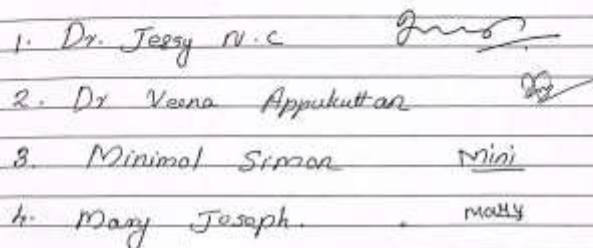 1. Dr. Jessy N.C
2. Dr Veena Appukuttan
3. Minimol Simon Mini
4. Mary Joseph. Mary